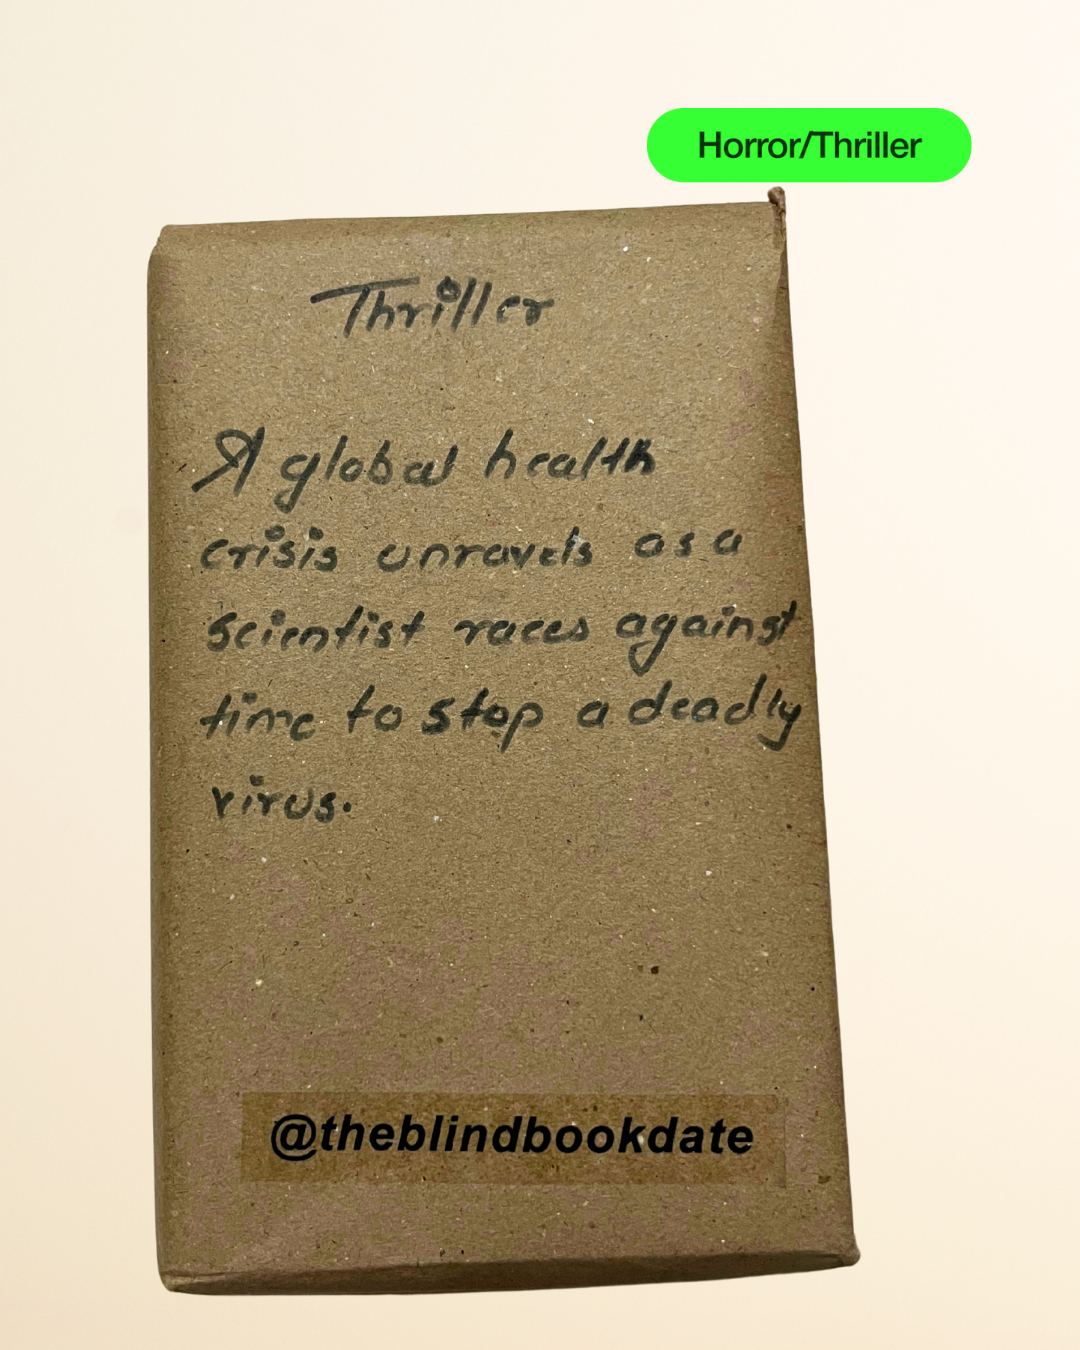 Horror/Thriller
Thriller
A global health
crisis unravels as a
scientist races against
time to stop a deadly
virus.
@theblindbookdate